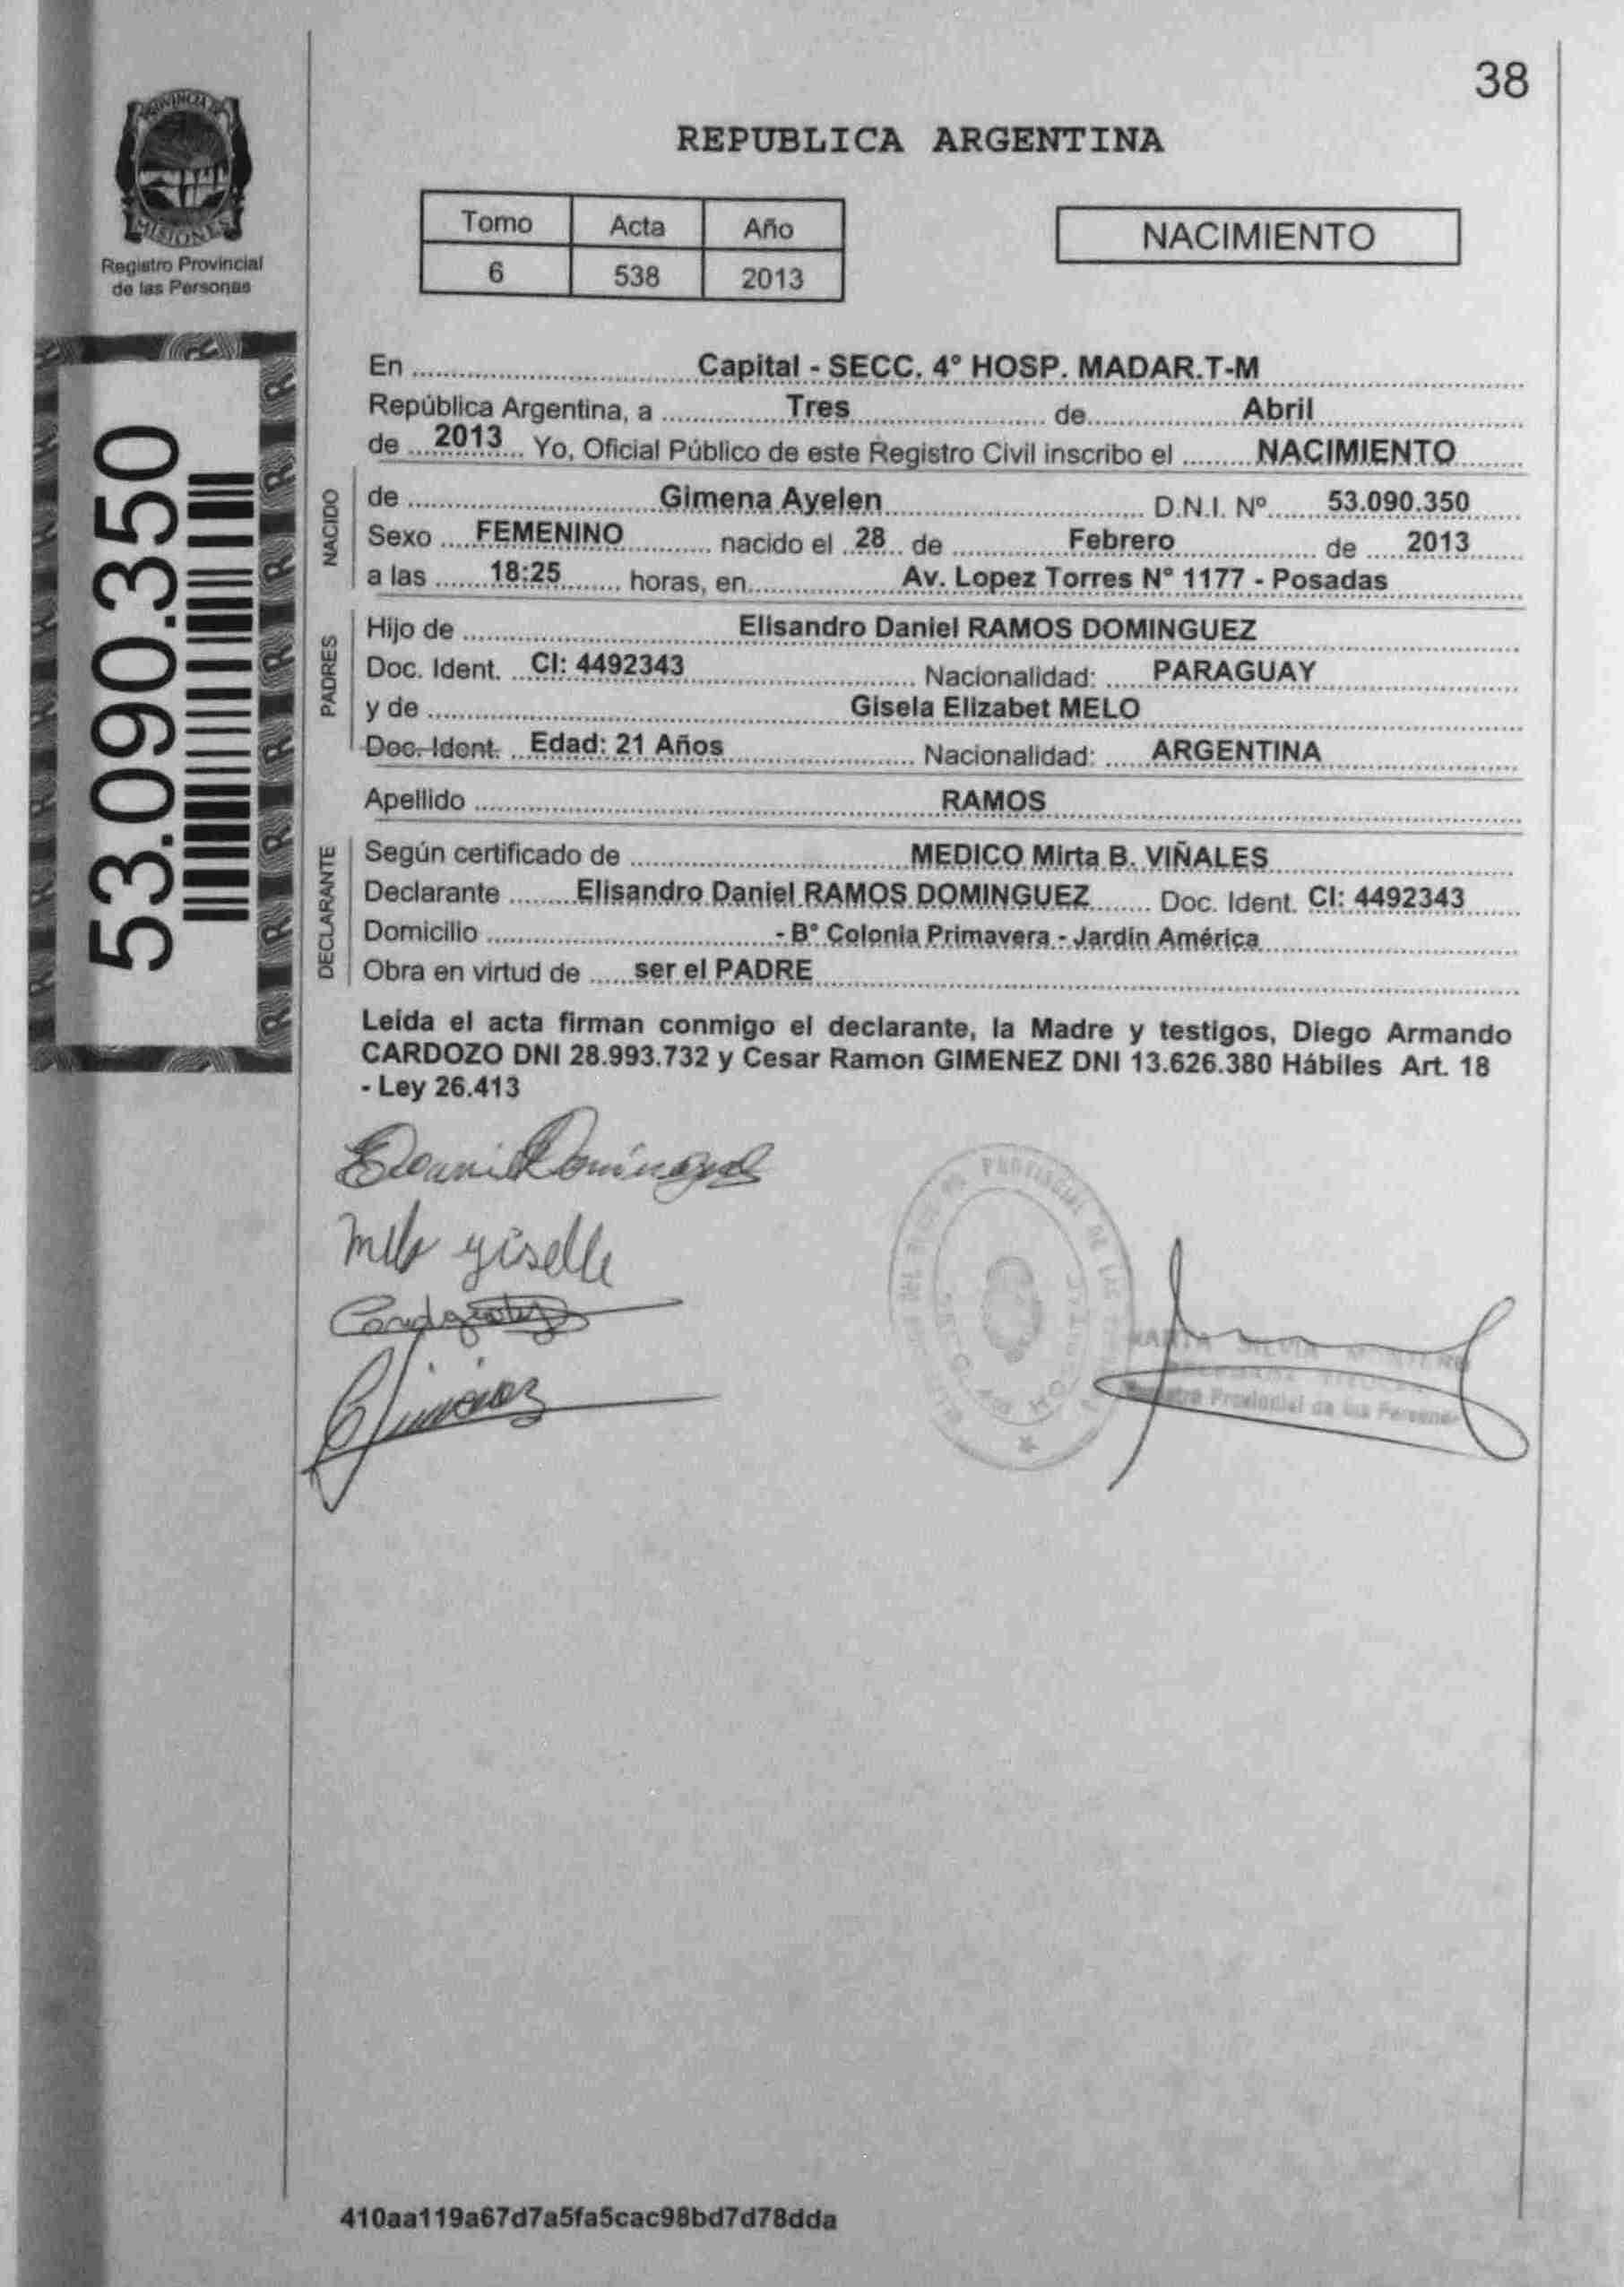 38
PROVINCIA DE
MISIONES
Registro Provincial
de las Personas
REPUBLICA ARGENTINA
Tomo Acta Año
6 538 2013
NACIMIENTO
53.090.350
En Capital - SECC. 4° HOSP. MADAR.T-M
República Argentina, a Tres de Abril
de 2013 Yo, Oficial Público de este Registro Civil inscribo el NACIMIENTO
NACIDO
de Gimena Ayelen D.N.I. Nº 53.090.350
Sexo FEMENINO nacido el 28 de Febrero de 2013
a las 18:25 horas, en Av. Lopez Torres N° 1177 - Posadas
PADRES
Hijo de Elisandro Daniel RAMOS DOMINGUEZ
Doc. Ident. CI: 4492343 Nacionalidad: PARAGUAY
y de Gisela Elizabet MELO
Doc. Ident. Edad: 21 Años Nacionalidad: ARGENTINA
Apellido RAMOS
DECLARANTE
Según certificado de MEDICO Mirta B. VIÑALES
Declarante Elisandro Daniel RAMOS DOMINGUEZ Doc. Ident. CI: 4492343
Domicilio - B° Colonia Primavera - Jardín América
Obra en virtud de ser el PADRE
Leída el acta firman conmigo el declarante, la Madre y testigos, Diego Armando
CARDOZO DNI 28.993.732 y Cesar Ramon GIMENEZ DNI 13.626.380 Hábiles Art. 18
- Ley 26.413
melo giselle
PROVINCIAL DE LAS
SILVIA
Provincial de las Personas
410aa119a67d7a5fa5cac98bd7d78dda